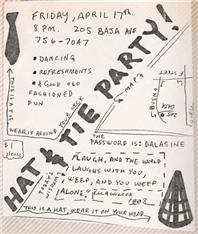 FRIDAY, APRIL 17TH
8 PM. 205 BAJA AVE
756-7047
• DANCING
• REFRESHMENTS
• & GOOD OLD
FASHIONED
FUN
THIS IS A TIE
WEAR IT AROUND YOUR NECK
please
HAT & TIE PARTY!
MAP
STREET
THE
PASSWORD IS: BALASINE
TODAY'S
WISDOM
LAUGH, AND THE WORLD
LAUGHS WITH YOU,
WEEP, AND YOU WEEP
ALONE
THIS IS A HAT, WEAR IT ON YOUR HEAD